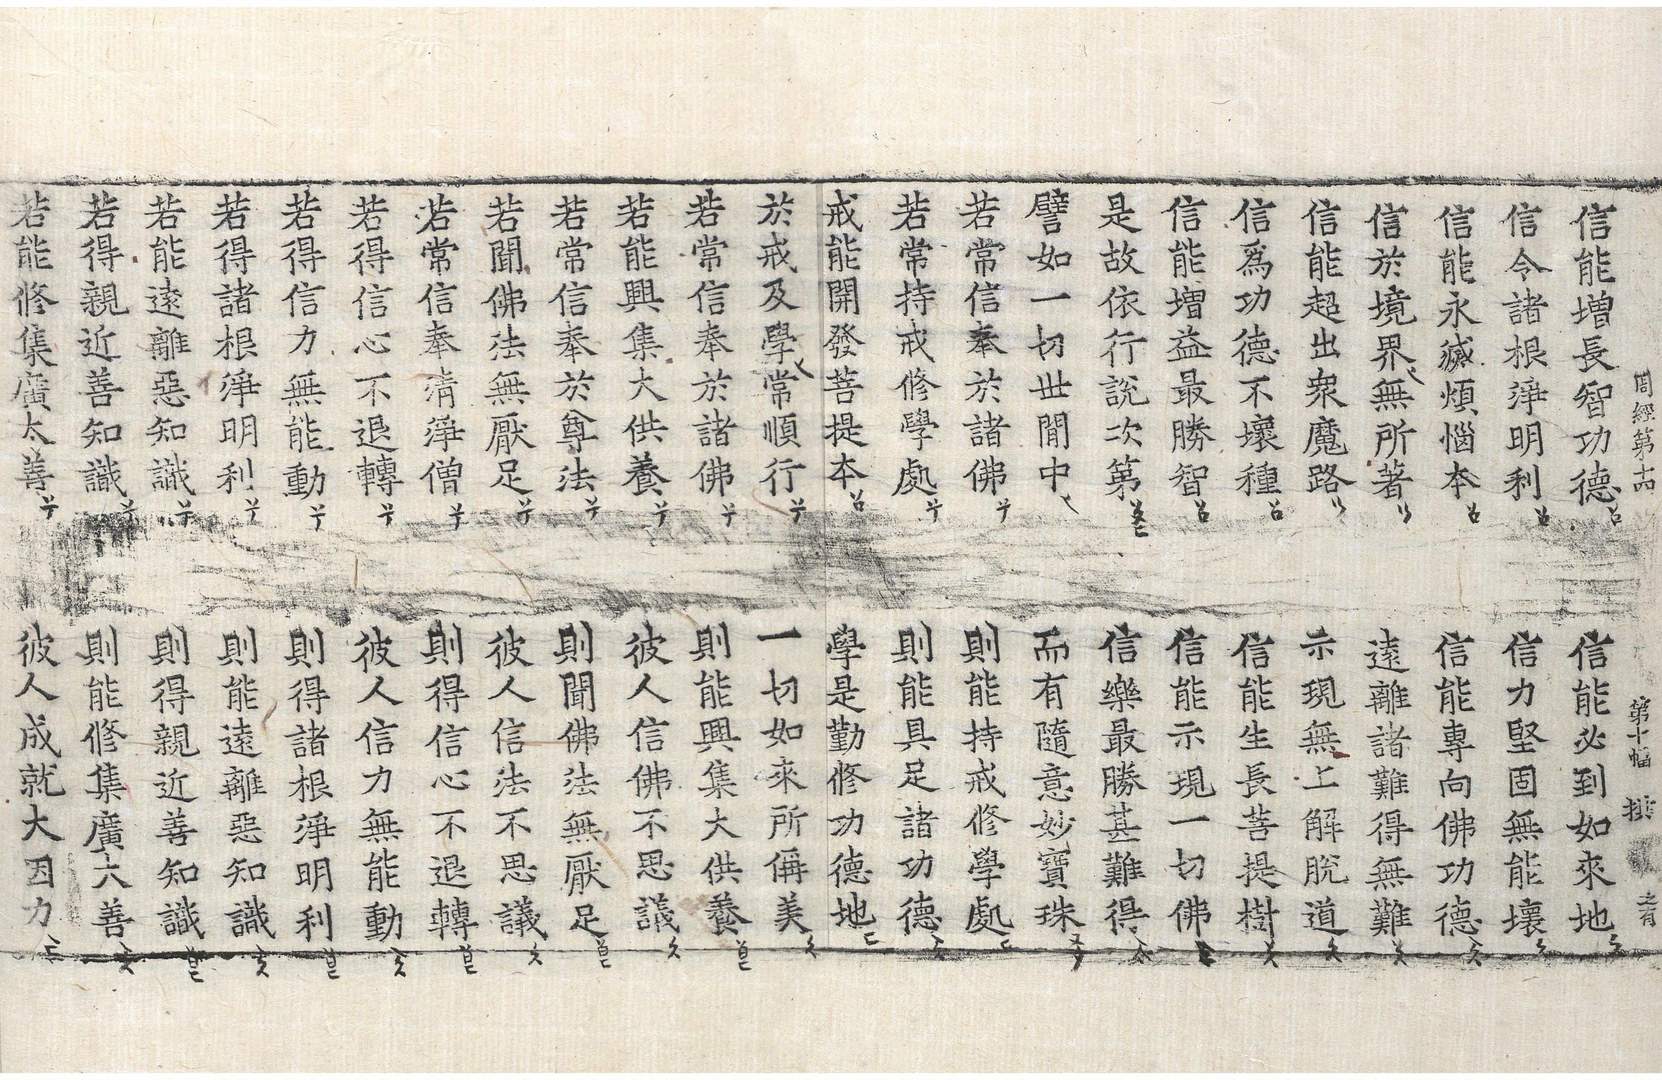 周經第十四 第十幅
信能增長智功德 信能必到如來地
信令諸根淨明利 信力堅固無能壞
信能永滅煩惱本 信能專向佛功德
信於境界無所著 遠離諸難得無難
信能超出衆魔路 示現無上解脫道
信爲功德不壞種 信能生長菩提樹
信能增益最勝智 信能示現一切佛
是故依行說次第 信樂最勝甚難得
譬如一切世間中 而有隨意妙寶珠
若常信奉於諸佛 則能持戒修學處
若常持戒修學處 則能具足諸功德
戒能開發菩提本 學是勤修功德地
於戒及學常順行 一切如來所稱美
若常信奉於諸佛 則能興集大供養
若能興集大供養 彼人信佛不思議
若常信奉於尊法 則聞佛法無厭足
若聞佛法無厭足 彼人信法不思議
若常信奉淸淨僧 則得信心不退轉
若得信心不退轉 彼人信力無能動
若得信力無能動 則得諸根淨明利
若得諸根淨明利 則能遠離惡知識
若能遠離惡知識 則得親近善知識
若得親近善知識 則能修集廣大善
若能修集廣大善 彼人成就大因力